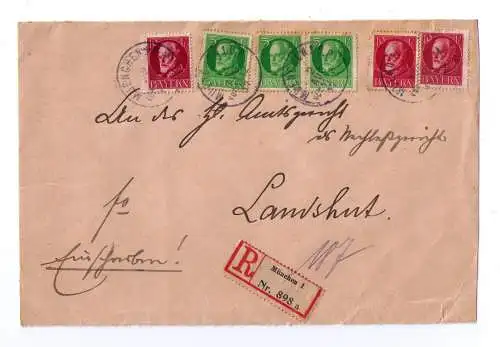 BAYERN BAYERN BAYERN BAYERN BAYERN BAYERN
MÜNCHEN
An das K. Amtsgericht
als Nachlaßgericht
Landshut.
Einschreiben!
107
R
München 1
Nr. 898 a